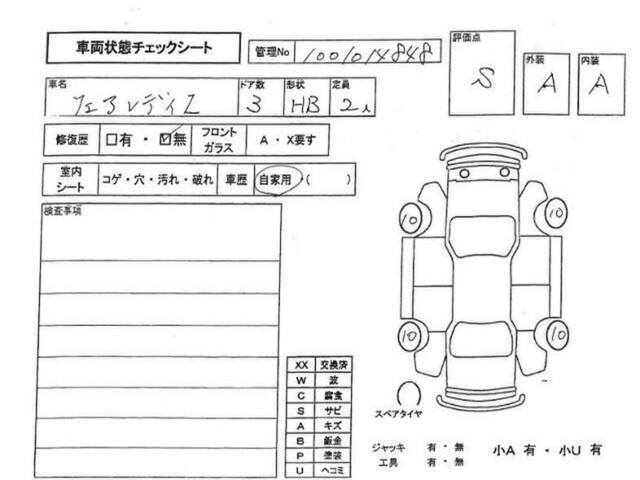 車両状態チェックシート
管理No 1001014848
評価点 S
外装 A
内装 A
車名 フェアレディZ
ドア数 3
形状 HB
定員 2人
修復歴 □有・☑無
フロントガラス A・X要す
室内シート コゲ・穴・汚れ・破れ
車歴 自家用・( )
検査事項
10 10
10 10
XX 交換済
W 波
C 腐食
S サビ
A キズ
B 鈑金
P 塗装
U ヘコミ
スペアタイヤ
ジャッキ 有・無
工具 有・無
小A 有・小U 有